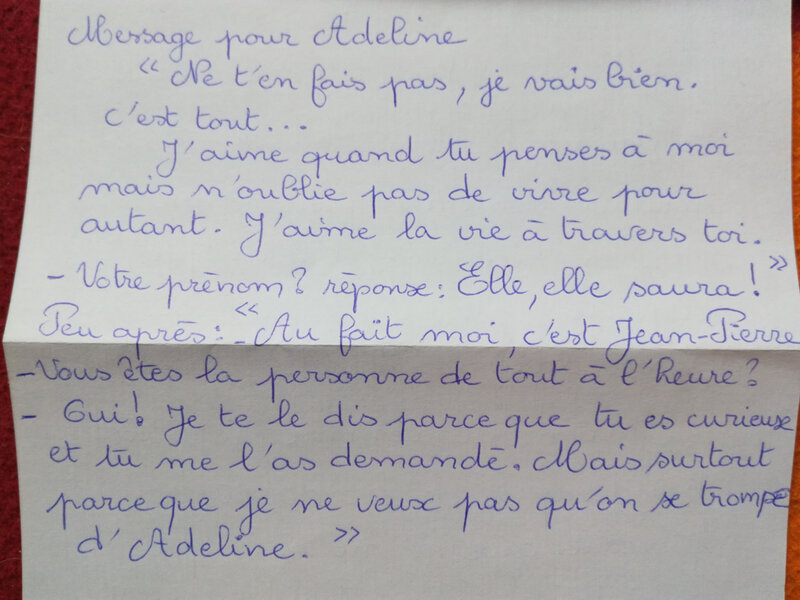 Message pour Adeline
« Ne t'en fais pas, je vais bien.
c'est tout...
J'aime quand tu penses à moi
mais n'oublie pas de vivre pour
autant. J'aime la vie à travers toi.
- Votre prénom? réponse: Elle, elle saura! »
Peu après: «- Au faït moi, c'est Jean-Pierre
- Vous êtes la personne de tout à l'heure?
- Oui! Je te le dis parce que tu es curieuse
et tu me l'as demandé. Mais surtout
parce que je ne veux pas qu'on se trompe
d'Adeline. »